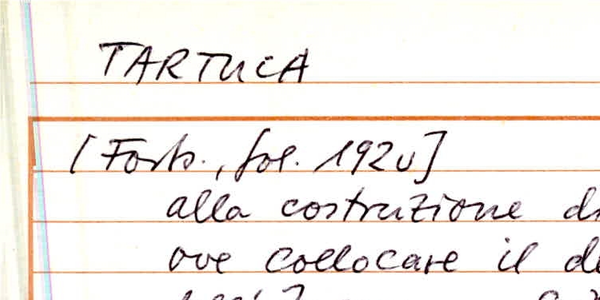 TARTUCA
[Forb., fol. 192v]
alla costruzione
ove collocare il